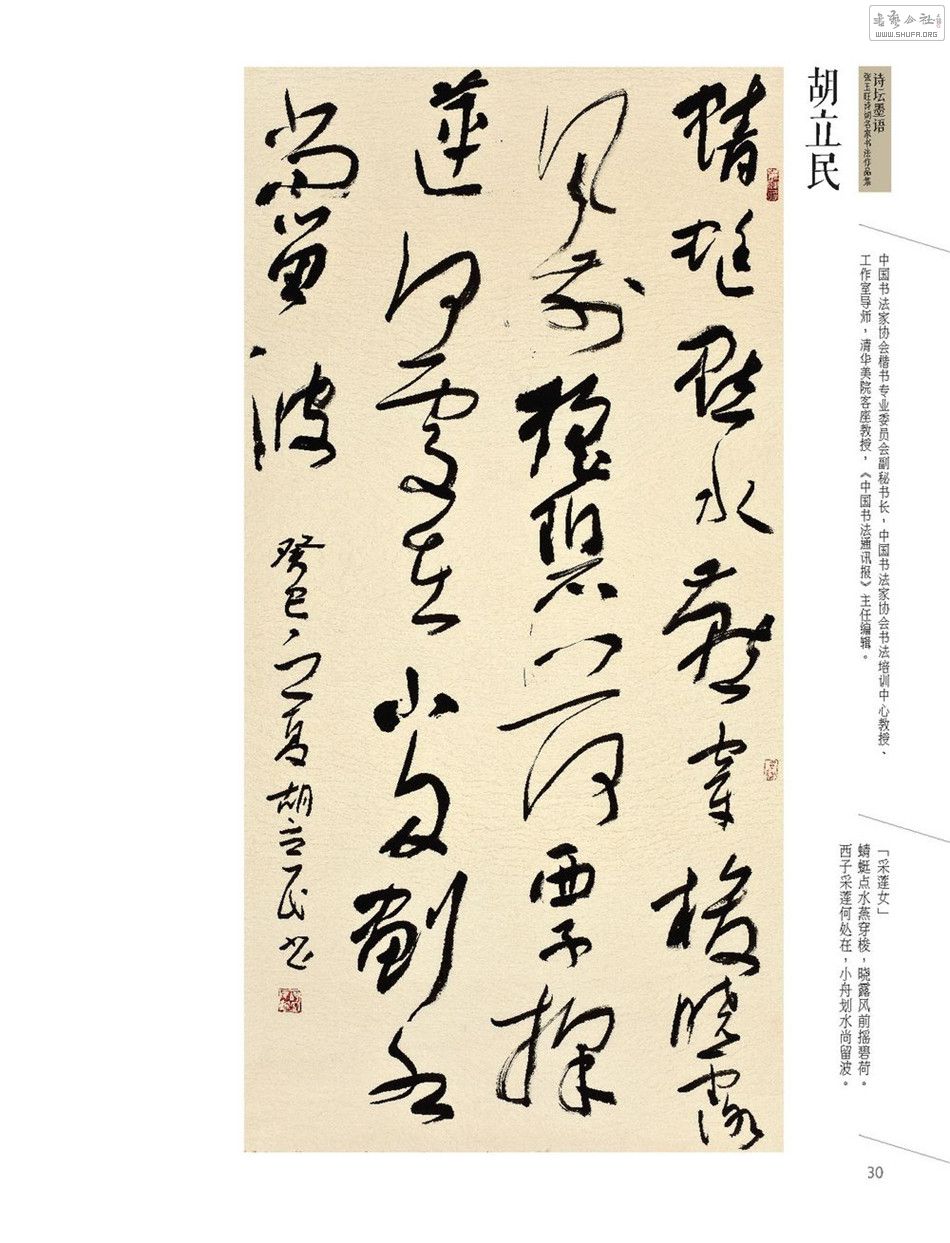 書藝公社
WWW.SHUFA.ORG
诗坛墨语
诗词名家书法作品集
胡立民
中国书法家协会楷书专业委员会副秘书长，中国书法家协会书法培训中心教授、
工作室导师，清华美院客座教授，《中国书法通讯报》主任编辑。
「采莲女」
蜻蜓点水燕穿梭，晓露风前摇碧荷。
西子采莲何处在，小舟划水尚留波。
蜻蜓點水燕穿梭曉露
風前搖碧荷西子採
蓮何處在小舟劃水
尚留波
癸巳之夏胡立民书
30